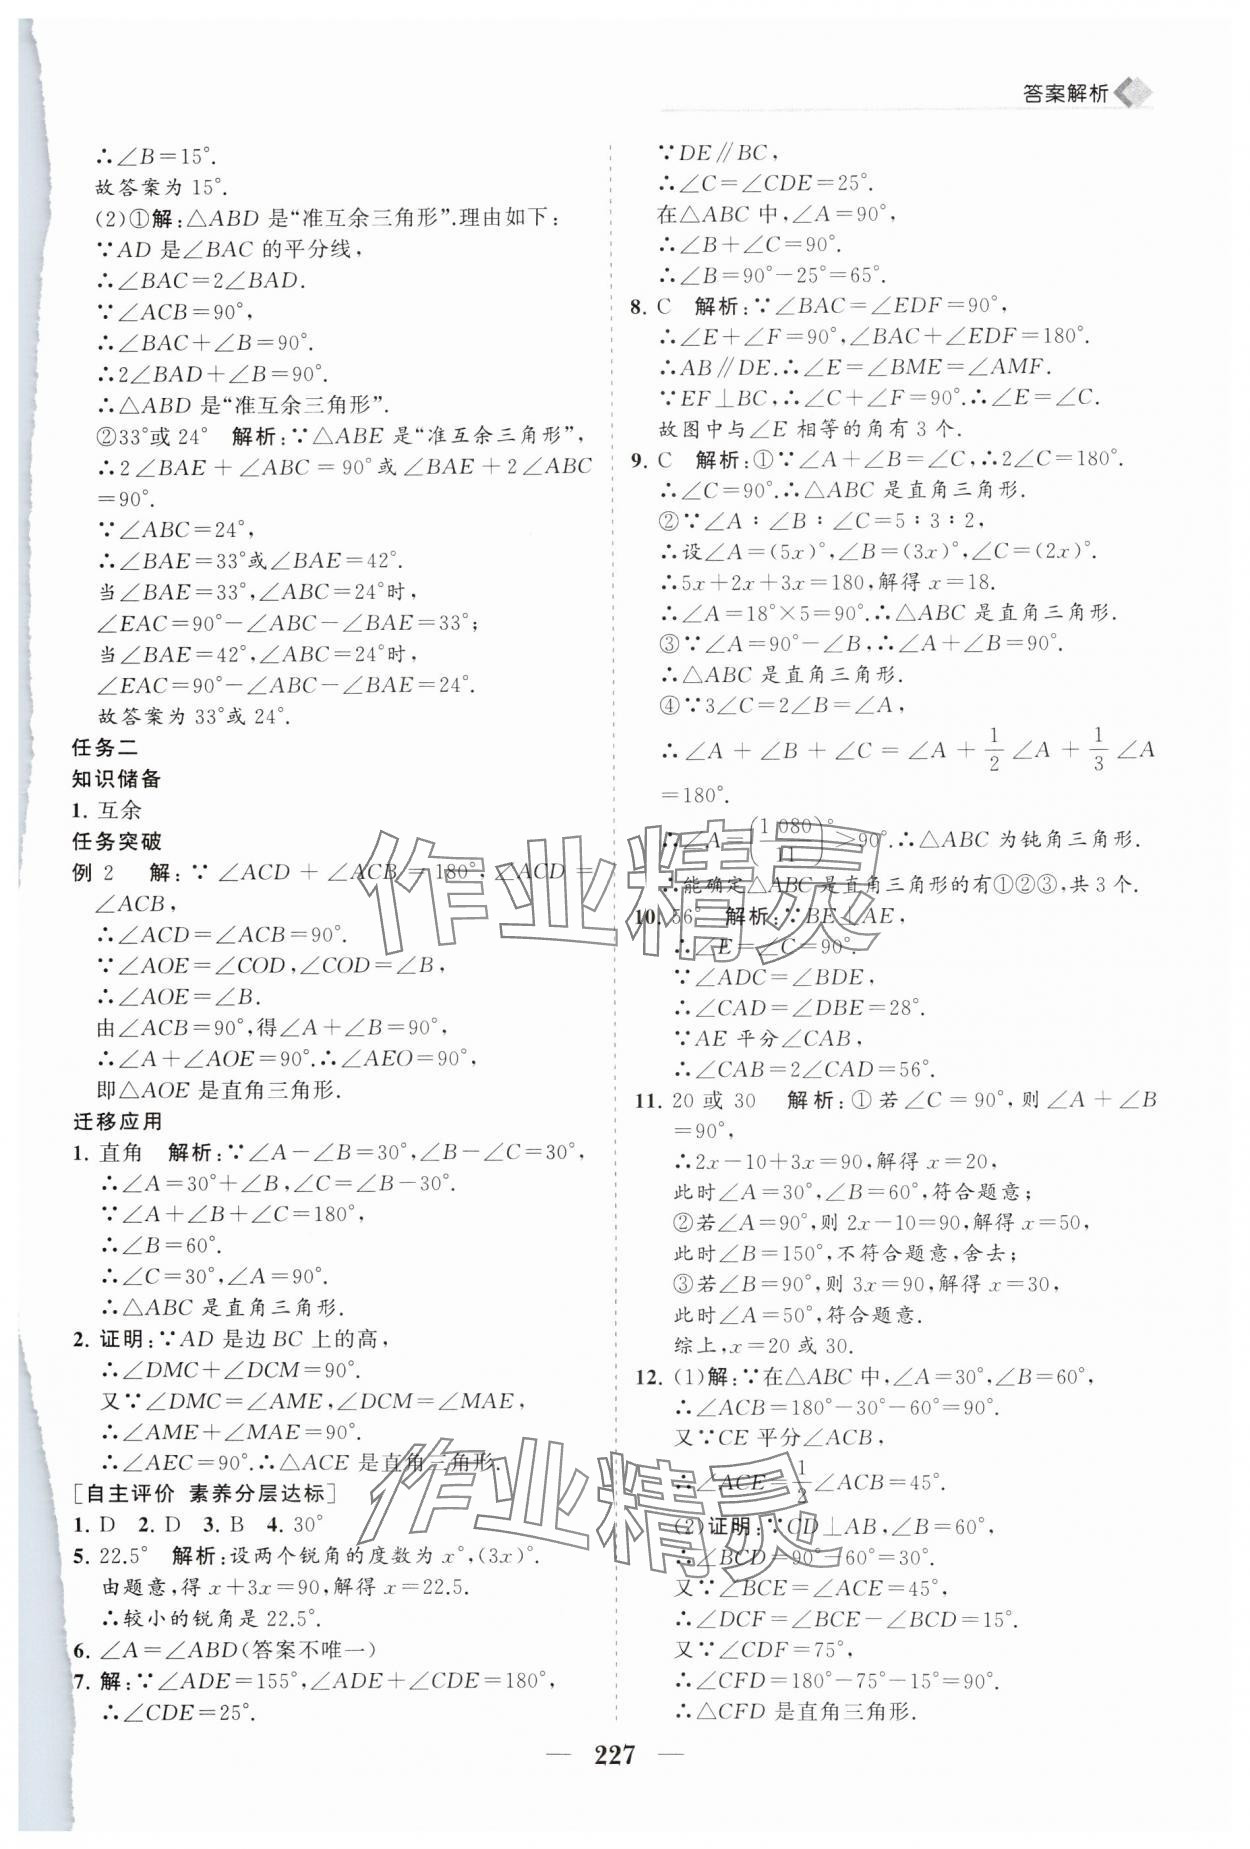 答案解析
∴∠B=15°.
故答案为 15°.
(2)①解:△ABD 是“准互余三角形”.理由如下:
∵AD 是∠BAC 的平分线,
∴∠BAC=2∠BAD.
∵∠ACB=90°,
∴∠BAC+∠B=90°.
∴2∠BAD+∠B=90°.
∴△ABD 是“准互余三角形”.
②33°或 24° 解析:∵△ABE 是“准互余三角形”,
∴2∠BAE+∠ABC=90°或∠BAE+2∠ABC
=90°.
∵∠ABC=24°,
∴∠BAE=33°或∠BAE=42°.
当∠BAE=33°,∠ABC=24°时,
∠EAC=90°-∠ABC-∠BAE=33°;
当∠BAE=42°,∠ABC=24°时,
∠EAC=90°-∠ABC-∠BAE=24°.
故答案为 33°或 24°.
任务二
知识储备
1. 互余
任务突破
例 2 解:∵∠ACD+∠ACB=180°,∠ACD=
∠ACB,
∴∠ACD=∠ACB=90°.
∵∠AOE=∠COD,∠COD=∠B,
∴∠AOE=∠B.
由∠ACB=90°,得∠A+∠B=90°,
∴∠A+∠AOE=90°.∴∠AEO=90°,
即△AOE 是直角三角形.
迁移应用
1. 直角 解析:∵∠A-∠B=30°,∠B-∠C=30°,
∴∠A=30°+∠B,∠C=∠B-30°.
∵∠A+∠B+∠C=180°,
∴∠B=60°.
∴∠C=30°,∠A=90°.
∴△ABC 是直角三角形.
2. 证明:∵AD 是边 BC 上的高,
∴∠DMC+∠DCM=90°.
又∵∠DMC=∠AME,∠DCM=∠MAE,
∴∠AME+∠MAE=90°.
∴∠AEC=90°.∴△ACE 是直角三角形.
[自主评价 素养分层达标]
1. D 2. D 3. B 4. 30°
5. 22.5° 解析:设两个锐角的度数为 x°,(3x)°.
由题意,得 x+3x=90,解得 x=22.5.
∴较小的锐角是 22.5°.
6. ∠A=∠ABD(答案不唯一)
7. 解:∵∠ADE=155°,∠ADE+∠CDE=180°,
∴∠CDE=25°.
∵DE∥BC,
∴∠C=∠CDE=25°.
在△ABC 中,∠A=90°,
∴∠B+∠C=90°.
∴∠B=90°-25°=65°.
8. C 解析:∵∠BAC=∠EDF=90°,
∴∠E+∠F=90°,∠BAC+∠EDF=180°.
∴AB∥DE.∴∠E=∠BME=∠AMF.
∵EF⊥BC,∴∠C+∠F=90°.∴∠E=∠C.
故图中与∠E 相等的角有 3 个.
9. C 解析:①∵∠A+∠B=∠C,∴2∠C=180°.
∴∠C=90°.∴△ABC 是直角三角形.
②∵∠A∶∠B∶∠C=5∶3∶2,
∴设∠A=(5x)°,∠B=(3x)°,∠C=(2x)°.
∴5x+2x+3x=180,解得 x=18.
∴∠A=18°×5=90°.∴△ABC 是直角三角形.
③∵∠A=90°-∠B,∴∠A+∠B=90°.
∴△ABC 是直角三角形.
④∵3∠C=2∠B=∠A,
∴∠A+∠B+∠C=∠A+1/2∠A+1/3∠A
=180°.
∴∠A=(1 080/11)°>90°.∴△ABC 为钝角三角形.
∴能确定△ABC 是直角三角形的有①②③,共 3 个.
10. 56° 解析:∵BE⊥AE,
∴∠E=∠C=90°.
∵∠ADC=∠BDE,
∴∠CAD=∠DBE=28°.
∵AE 平分∠CAB,
∴∠CAB=2∠CAD=56°.
11. 20 或 30 解析:①若∠C=90°,则∠A+∠B
=90°,
∴2x-10+3x=90,解得 x=20,
此时∠A=30°,∠B=60°,符合题意;
②若∠A=90°,则 2x-10=90,解得 x=50,
此时∠B=150°,不符合题意,舍去;
③若∠B=90°,则 3x=90,解得 x=30,
此时∠A=50°,符合题意.
综上,x=20 或 30.
12. (1)解:∵在△ABC 中,∠A=30°,∠B=60°,
∴∠ACB=180°-30°-60°=90°.
又∵CE 平分∠ACB,
∴∠ACE=1/2∠ACB=45°.
(2)证明:∵CD⊥AB,∠B=60°,
∴∠BCD=90°-60°=30°.
又∵∠BCE=∠ACE=45°,
∴∠DCF=∠BCE-∠BCD=15°.
又∵∠CDF=75°,
∴∠CFD=180°-75°-15°=90°.
∴△CFD 是直角三角形.
作业精灵
作业精灵
— 227 —